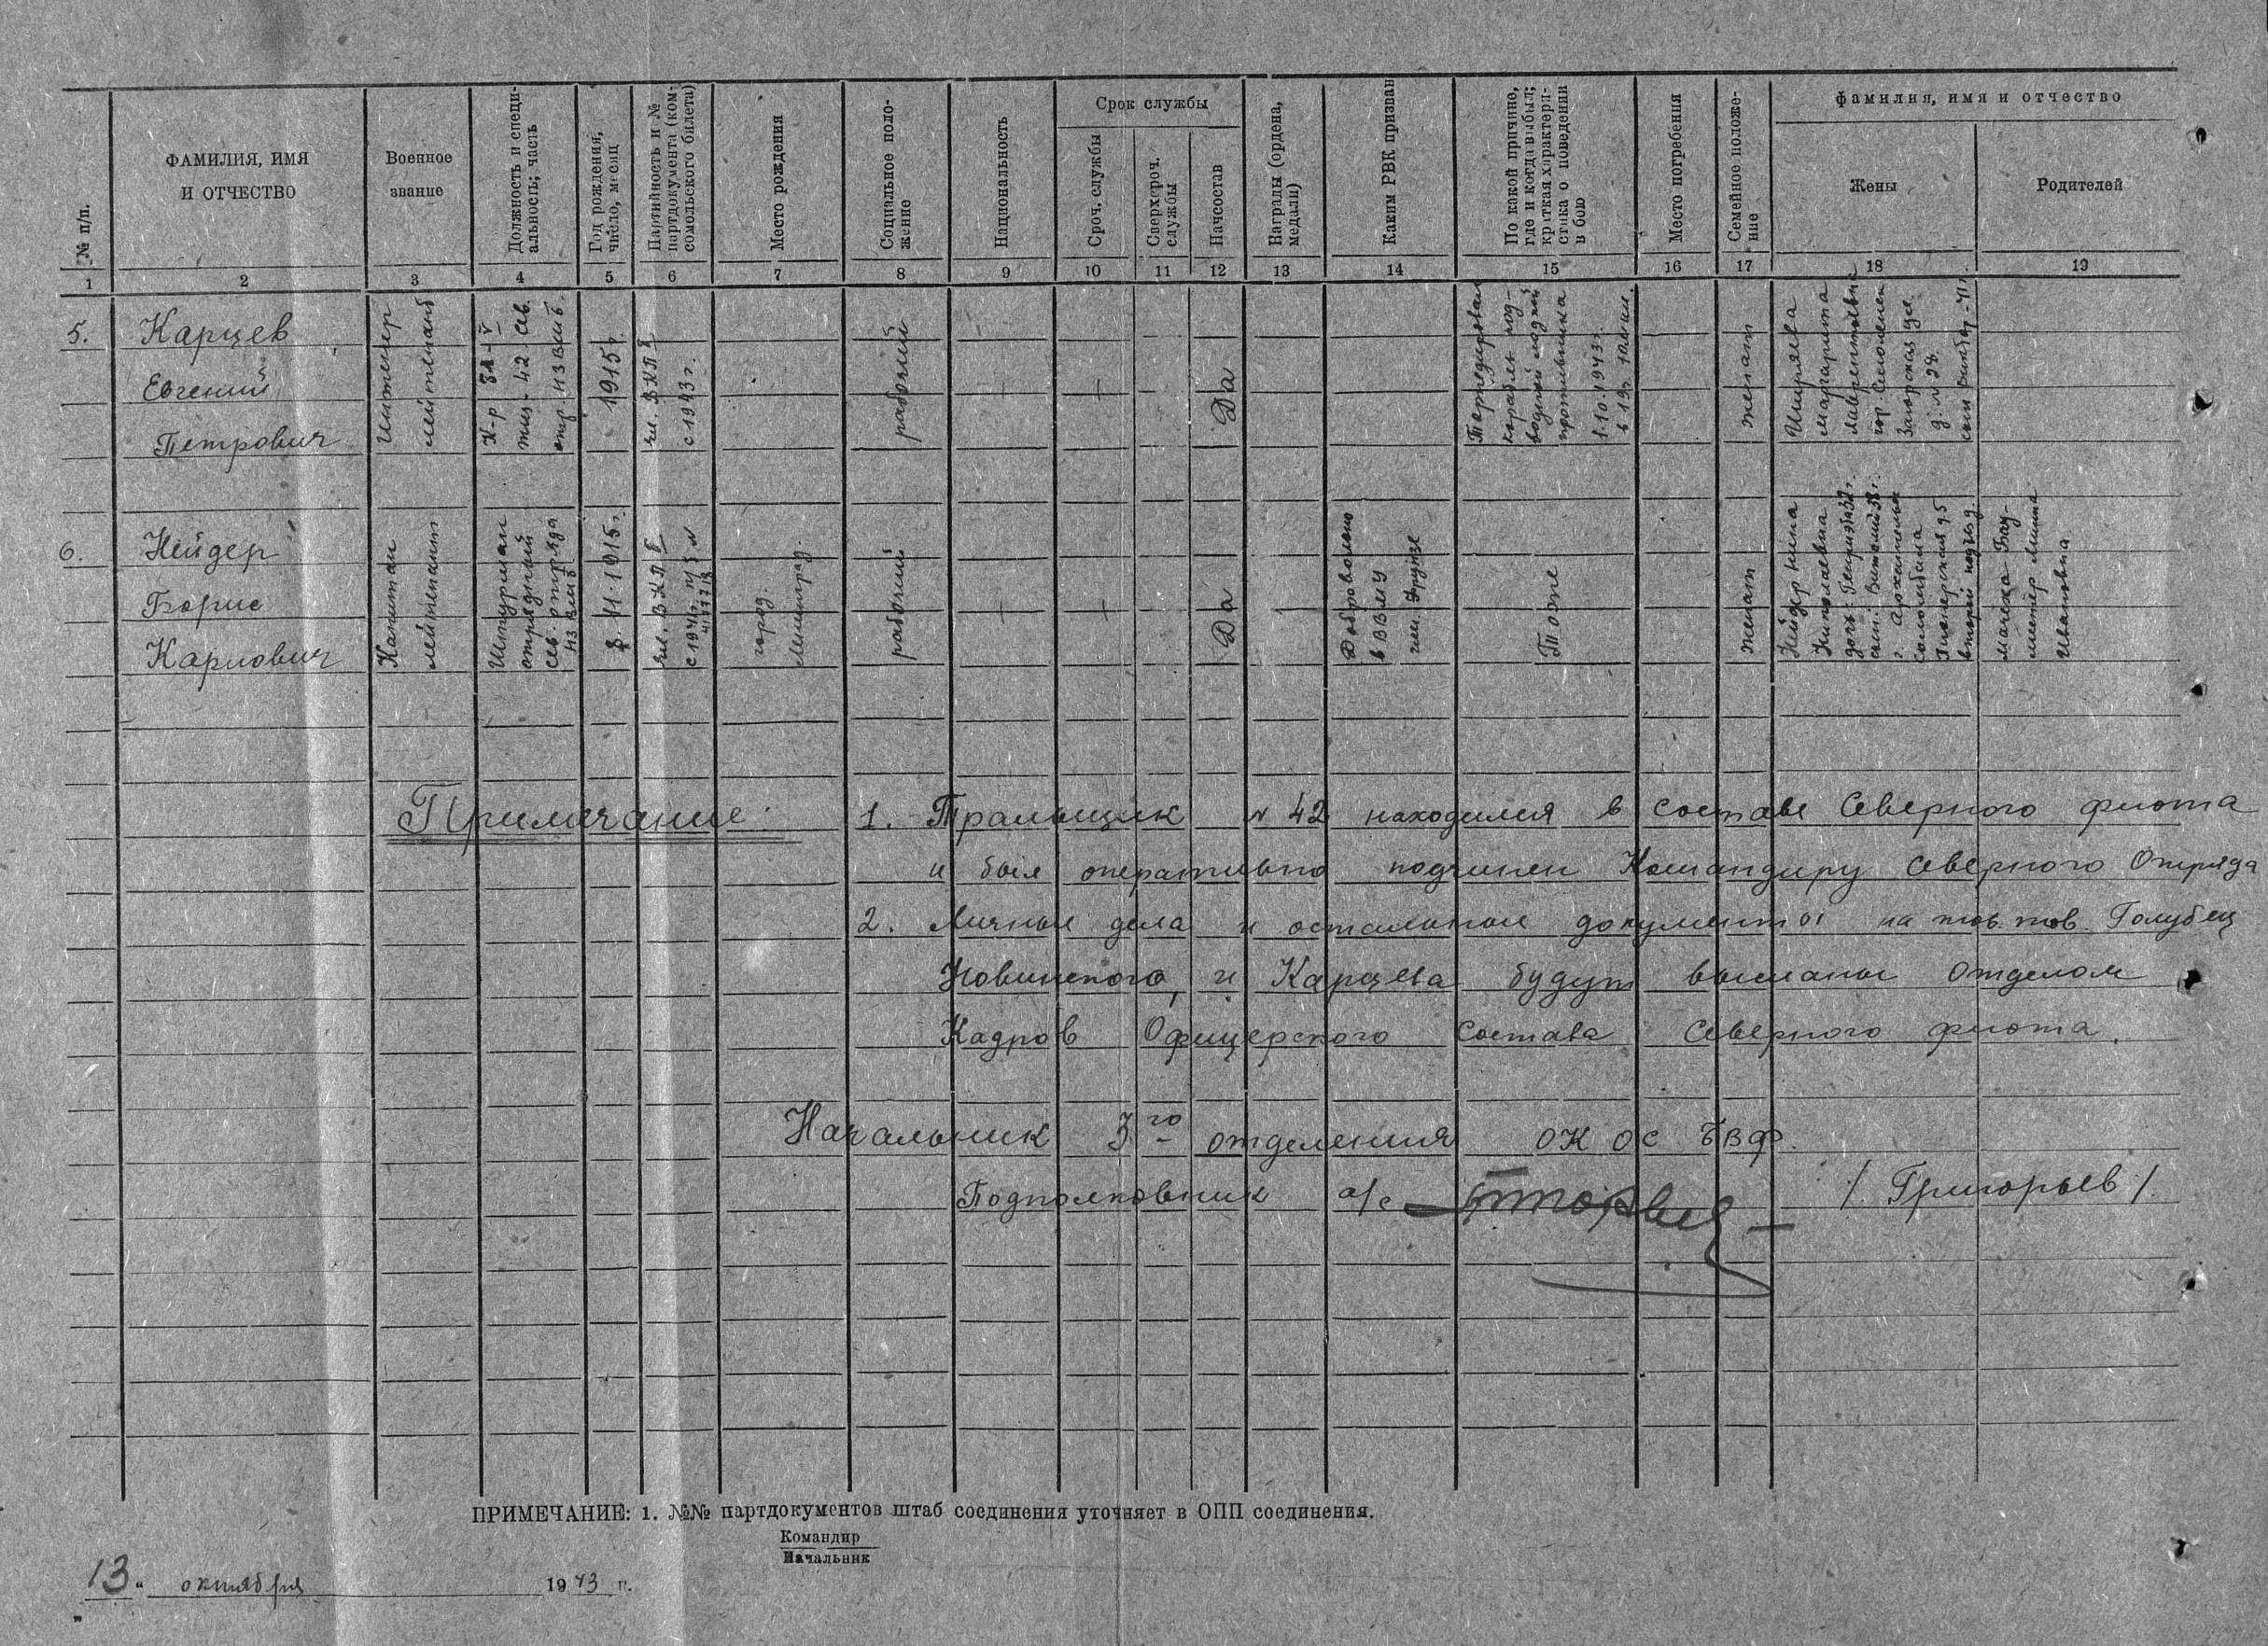 № п/п.
ФАМИЛИЯ, ИМЯ
И ОТЧЕСТВО
Военное
звание
Должность и специ-
альность; часть
Год рождения,
число, месяц
Партийность и №
партдокумента (ком-
сомольского билета)
Место рождения
Социальное поло-
жение
Национальность
Срок службы
Сроч. службы
Сверхсроч.
службы
Начсостав
Награды (ордена,
медали)
Каким РВК призван
По какой причине,
где и когда выбыл;
краткая характери-
стика о поведении
в бою
Место погребения
Семейное положе-
ние
Фамилия, имя и отчество
Жены
Родителей
1 2 3 4 5 6 7 8 9 10 11 12 13 14 15 16 17 18 19
5.
Карцев
Евгений
Петрович
Инженер
лейтенант
К-р БЧ-V
тщ-42 Св.
отр. НЗ ВМБ.
1915 г.
чл. ВКП б
с 1943 г.
—
рабочий
—
—
Да
Торпедирован
корабль под-
водной лодкой
противника
1.10.1943 г.
женат
Ширяева
Маргарита
Лаврентьевна
Загорская
д. № 28.
6.
Нейдер
Борис
Карлович
Капитан
лейтенант
Штурман
отрядный
Сев. отряда
НЗ ВМБ
8.11.1915 г.
чл. ВКП б
с 1941 г. п/б №
город.
Ленинград.
рабочий
—
—
Да
Добровольно
в ВВМУ
им. Фрунзе
Тоже
женат
Нейдер Нина
Николаевна
г. Архангельск
Соломбала
Пионерская
мачеха Бау-
местер Минна
Ивановна
Примечание: 1. Тральщик № 42 находился в составе Северного флота
и был оперативно подчинен Командиру Северного Отряда
2. Личные дела и остальные документы на тов. тов. Голубец
Новинского, и Карцева будут высланы отделом
Кадров Офицерского Состава Северного флота.
Начальник 3го отделения ОК ОС БВФ.
Подполковник а/с / Григорьев /
ПРИМЕЧАНИЕ: 1. №№ партдокументов штаб соединения уточняет в ОПП соединения.
Командир
Начальник
„13" октября 1943 г.